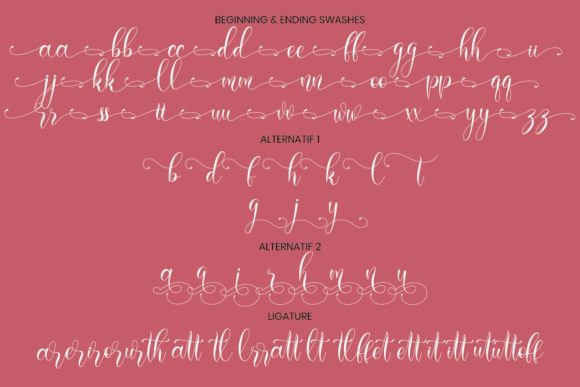 BEGINNING & ENDING SWASHES
aa bb cc dd ee ff gg hh ii
jj kk ll mm nn oo pp qq
rr ss tt uu vv ww xx yy zz
ALTERNATIF 1
b d f h k l t
g j y
ALTERNATIF 2
a q i r h m n y
LIGATURE
ar er ir or ur th att tl lr ratt lt tl ffet ett it itt ut utt off